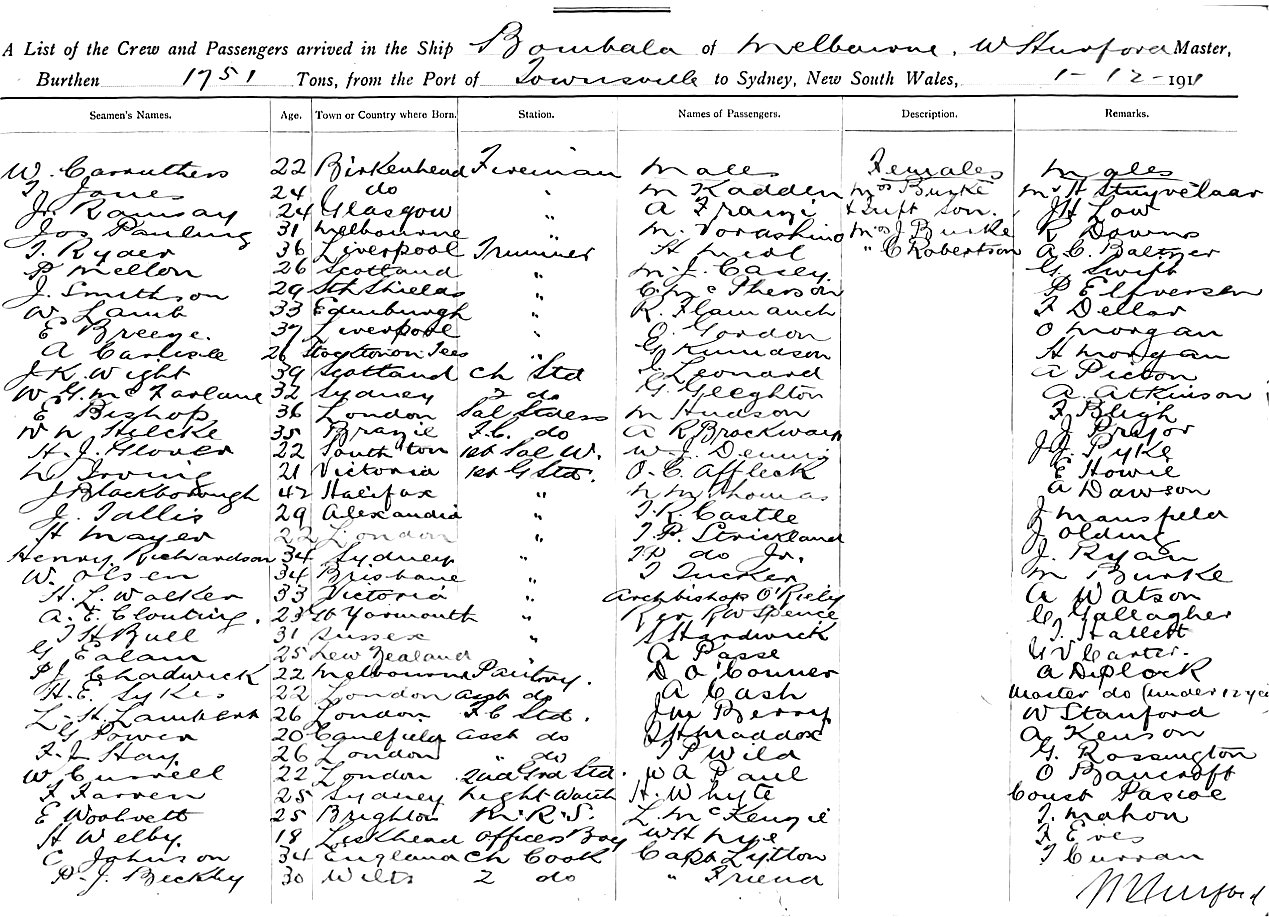 A List of the Crew and Passengers arrived in the Ship Bombala of Melbourne, W Hurford Master,
Burthen 1751 Tons, from the Port of Townsville to Sydney, New South Wales, 1-12-1911
Seamen's Names. Age. Town or Country where Born. Station. Names of Passengers. Description. Remarks.
W. Carruthers 22 Birkenhead Fireman Males Females Males
T. Jones 24 do " M Kadden Mrs Burke Mr H Stuyvelaar
Jr. Ramsay 24 Glasgow " A Franzi & Inft Son. J H Low
Jos Pauling 31 Melbourne " M. Vorashino Mrs J Burke R Downs
T. Ryder 36 Liverpool Trimmer H " C Robertson A. C. Baltzer
P Mellon 26 Scotland " M. J. Casey G Swift
J. Smithson 29 Sth Shields " C. McPherson P Elfversen
W Lamb 33 Edinburgh " R. Flamanch F Dellar
E Breeze. 37 Liverpool " O. Gordon O Morgan
A Carlisle 26 Stockton on Tees " G Knudson H Morgan
J. K. Wight 39 Scotland Ch Std J Leonard A Picton
W. G. McFarlane 32 Sydney 2 do G. Gleghton A. Atkinson
E Bishop 36 London Sal Stdess M Hudson F Bligh
W H Hilcke 35 Brazil F.C. do A R Brockway J Pragor
H. J. Glover 22 South'ton 1st Sal W. W. J. Dennis J. J. Pyke
L. Irving 21 Victoria 1st G Std. O. C. Affleck E Howie
J Blackborough 42 Halifax " N M Thomas A Dawson
J. Tallis 29 Alexandria " T. R. Castle J Mansfield
H Mayer 22 London " T P. Strickland J Olding
Henry Richardson 34 Sydney " T P do Jr. J. Ryan
W. Olsen 34 Brisbane " T Tucker M Burke
H. L. Walker 33 Victoria " Archbishop O'Riely A Watson
A. E. Clouting. 23 Gt Yarmouth " Rev R W Spence C Gallagher
T H Bull 31 Sussex " S Hardwick T. Hallett
G Ealam 25 New Zealand A Passe U V Carter.
P J Chadwick 22 Melbourne Pantry. D O'Connor A Diplock
H. E. Sykes 22 London asst do A Cash Master do (under 12 yrs
L. H. Lambert 26 London F C Std. J M Berry W Stanford
G Power 20 Caulfield asst do J H Maddox A Kenson
F. J. Hay. 26 London " do T P Wild G. Rossington
W Currell 22 London 2nd Grd Std. W A Paul O Bancroft
F Farren 25 Sydney Night Watch H. Whyte Const Pascoe
E Woolvett 25 Brighton M. R. S. L. McKenzie T. Mahon
H Welby. 18 Officers Boy W H Nye F Eves
C Johnson 34 England Ch Cook Capt Lytton T Curran
P. J. Beckby 30 Wilts 2 do " Friend
W Hurford